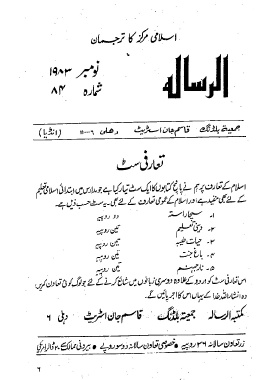 اسلامی مرکز کا ترجمان
الرسالہ
نومبر ۱۹۸۳
شمارہ ۸۴
جمعیتہ بلڈنگ قاسم جان اسٹریٹ دہلی ۱۱۰۰۰۶ (انڈیا)
تعارفی سٹ
اسلام کے تعارف پر ہم نے پانچ کتابوں کا ایک سٹ تیار کیا ہے جو مدارس میں ابتدائی اسلامی تعلیم
کے لئے بھی مفید ہے اور اسلام کے عمومی تعارف کے لئے بھی۔ یہ سٹ حسب ذیل ہے۔
۱۔ سچا راستہ دو روپیہ
۲۔ دینی تعلیم تین روپیہ
۳۔ حیات طیبہ تین روپیہ
۴۔ باغ جنت تین روپیہ
۵۔ نار جہنم تین روپیہ
اس تعارفی سٹ کو اردو کے علاوہ دوسری زبانوں میں شائع کرنے کے لئے جو لوگ کوئی تعاون کریں
وہ انشاء اللہ خدا کے یہاں اس کا اجر پائیں گے۔
مکتبہ الرسالہ جمعیتہ بلڈنگ قاسم جان اسٹریٹ دہلی ۶
زر تعاون سالانہ ۳۶ روپیہ • خصوصی تعاون سالانہ دو سو روپے • بیرونی ممالک سے ۲۰ ڈالر امریکی